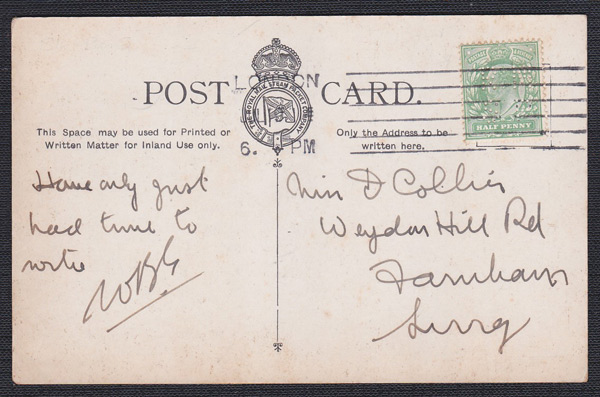 POST CARD.
LONDON
THE ROYAL MAIL STEAM PACKET COMPANY
6. PM
POSTAGE REVENUE
HALF PENNY
This Space may be used for Printed or
Written Matter for Inland Use only.
Only the Address to be
written here.
Have only just
had time to
write
WBG
Miss D Collier
Weydon Hill Rd
Farnham
Surrey